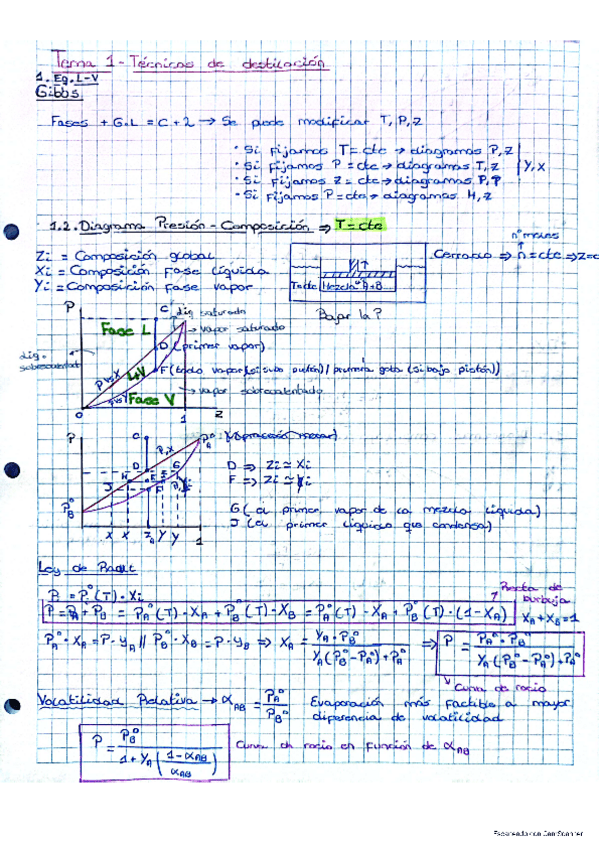 Tema 1 - Técnicas de destilación
1. Eq. L-V
Gibbs
Fases + G.L = C + 2 → Se puede modificar T, P, Z
· Si fijamos T = cte → diagramas P, Z
· Si fijamos P = cte → diagramas T, Z } Y, X
· Si fijamos Z = cte → diagramas P, T
· Si fijamos P = cte → diagramas H, Z
1.2. Diagrama Presión - Composición ⇒ T = cte
nº moles
Zi = Composición global
Xi = Composición fase líquida
Yi = Composición fase vapor
T=cte Mezcla A+B
Cerrado ⇒ n = cte ⇒ Z = c
Bajar la P
P
C
líq saturado
Fase L
→ vapor saturado
D (primer vapor)
P vs X
L+V
F (todo vapor (si subo pistón) / primera gota (si bajo pistón))
→ vapor sobrecalentado
Fase V
0
1
Z
P
C
P, X
PA°
D
G
H
E
J
F
PB°
X X ZA Y Y 1
D ⇒ Zi ≃ Xi
F ⇒ Zi ≃ Yi
G (el primer vapor de la mezcla líquida)
J (el primer líquido que condensa)
Ley de Raoult
Pi = Pi°(T) · Xi
Recta de burbuja
P = PA + PB = PA°(T) · XA + PB°(T) · XB = PA°(T) · XA + PB°(T) · (1 - XA)
XA + XB = 1
PA° · XA = P · yA // PB° · XB = P · yB ⇒ XA = YA · PB° / YA (PB° - PA°) + PA° ⇒ P = PA° · PB° / YA (PB° - PA°) + PA°
Curva de rocío
Volatilidad Relativa → αAB = PA° / PB° Evaporación más factible a mayor
diferencia de volatilidad
P = PB° / 1 + YA (1 - αAB / αAB)
Curva de rocío en función de αAB
Escaneado con CamScanner